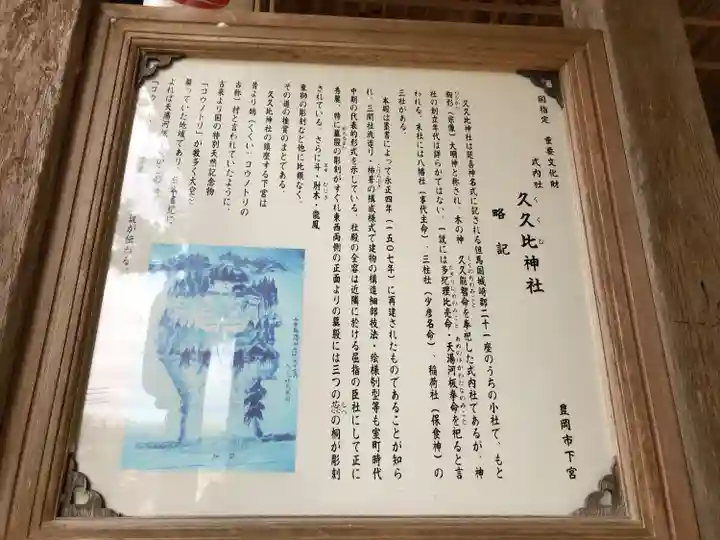 国指定　重要文化財
式内社
久久比神社
くくひ
略記
豊岡市下宮
久久比神社は延喜神名式に記される但馬国城崎郡二十一座のうちの小社で、もと
胸形(宗像)大明神と称され、木の神　久久能智命を奉祀した式内社であるが、神
社の創立年代は詳らかではない。一説には多紀理比売命・天湯河板挙命を祀ると言
われる。末社には八幡社(事代主命)、三柱社(少彦名命)、稲荷社(保食神)の
三社がある。
本殿は墨書によって永正四年(一五〇七年)に再建されたものであることが知ら
れ、三間社流造り・柿葺の構成様式で建物の構造細部技法・絵様刳型等も室町時代
中期の代表的形式を示している。社殿の全容は近隣に於ける屈指の臣社にして正に
秀麗、特に蟇股の彫刻がすぐれ東西両側の正面よりの蟇股には三つの蕊の桐が彫刻
されている。さらに斗・肘木・龍鳳
象獅の彫刻など他に比類なく、
その道の推賞のまとである。
久久比神社の鎮座する下宮は
昔より鵠(くくい…コウノトリの
古称)村と言われていたように、
古来より国の特別天然記念物
「コウノトリ」が数多く大空を
舞っていた地域であり、日本書紀に
よれば天湯河板
「コウ
説が伝わる。